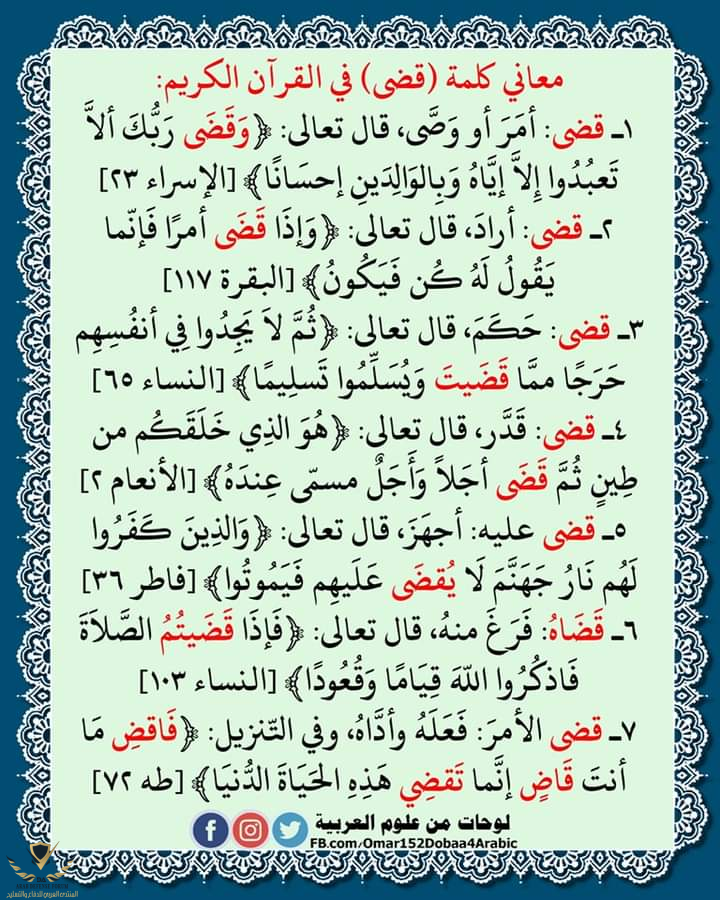 معاني كلمة (قضى) في القرآن الكريم:
١ـ قضى: أمَرَ أو وَصَّى، قال تعالى: ﴿وَقَضَى رَبُّكَ ألاَّ
تَعبُدُوا إِلاَّ إيَّاهُ وَبِالوَالِدَينِ إحسَانًا﴾ [الإسراء ٢٣]
٢ـ قضى: أرادَ، قال تعالى: ﴿وَإذَا قَضَى أمرًا فَإنّما
يَقُولُ لَهُ كُن فَيَكُونُ﴾ [البقرة ١١٧]
٣ـ قضى: حَكَمَ، قال تعالى: ﴿ثُمَّ لاَ يَجِدُوا فِي أنفُسِهِم
حَرَجًا ممَّا قَضَيتَ وَيُسَلِّمُوا تَسلِيمًا﴾ [النساء ٦٥]
٤ـ قضى: قَدَّر، قال تعالى: ﴿هُوَ الذِي خَلَقَكُم من
طِينٍ ثُمَّ قَضَى أجَلاً وَأَجَلٌ مسمّى عِندَهُ﴾ [الأنعام ٢]
٥ـ قضى عليه: أجهَزَ، قال تعالى: ﴿وَالذِينَ كَفَرُوا
لَهُم نَارُ جَهَنَّمَ لَا يُقضَى عَلَيهِم فَيَمُوتُوا﴾ [فاطر ٣٦]
٦ـ قَضَاهُ: فَرَغَ منهُ، قال تعالى: ﴿فَإذَا قَضَيتُمُ الصَّلاَةَ
فَاذكُرُوا اللهَ قِيَامًا وَقُعُودًا﴾ [النساء ١٠٣]
٧ـ قضى الأمرَ: فَعَلَهُ وأدَّاهُ، وفي التّنزيل: ﴿فَاقضِ مَا
أنتَ قَاضٍ إنَّما تَقضِي هَذِهِ الحَيَاةَ الدُّنيَا﴾ [طه ٧٢]
لوحات من علوم العربية
FB.com/Omar152Dobaa4Arabic
المنتدى العربي للدفاع والتسليح